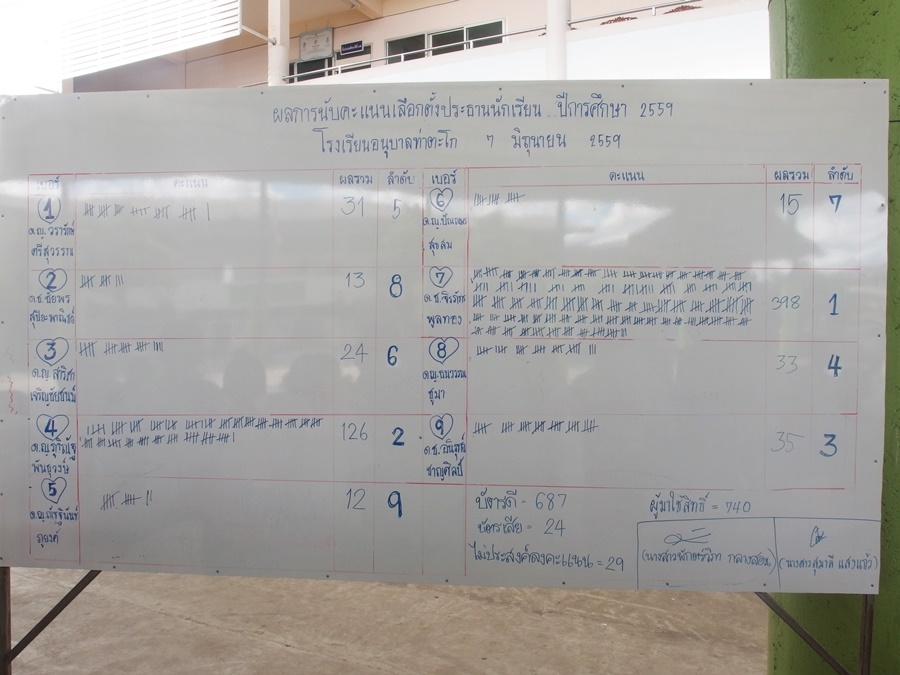 ผลการนับคะแนนเลือกตั้งประธานนักเรียน ปีการศึกษา 2559
โรงเรียนอนุบาลท่าตะโก 7 มิถุนายน 2559
เบอร์ คะแนน ผลรวม ลำดับ เบอร์ คะแนน ผลรวม ลำดับ
1 31 5
ด.ญ. วรารักษ์
ศรีสุวรรณ
2 13 8
ด.ช. ชัยพร
3 24 6
ด.ญ. สาริศา
เจริญชัยชนม์
4 126 2
พันธุวงษ์
5 12 9
ภูยงค์
6 15 7
สุขสม
7 398 1
พูลทอง
8 33 4
ชูมา
9 35 3
ชาญศิลป์
บัตรดี - 687
บัตรเสีย - 24
ไม่ประสงค์ลงคะแนน = 29
ผู้มาใช้สิทธิ์ = 740
กลางสอน)
(นางสาวสุมาลี แสงแก้ว)